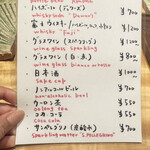 ハイボール (デュワーズ) ¥700
whisky soda "Dewar's"
富士ウイスキー
whisky "Fuji"
グラスワイン (スパークリング) ¥1200
wine glass sparkling
グラスワイン (白・赤) ¥800
wine glass bianco rosso
日本酒 ¥1000
sake cup
ノンアルコールビール ¥700
non-alcoholic beer
ウーロン茶 ¥550
oolong tea
コカ・コーラ ¥550
coca cola
サンペレグリノ (炭酸水) ¥700
sparkling water "S.PELLEGRINO"